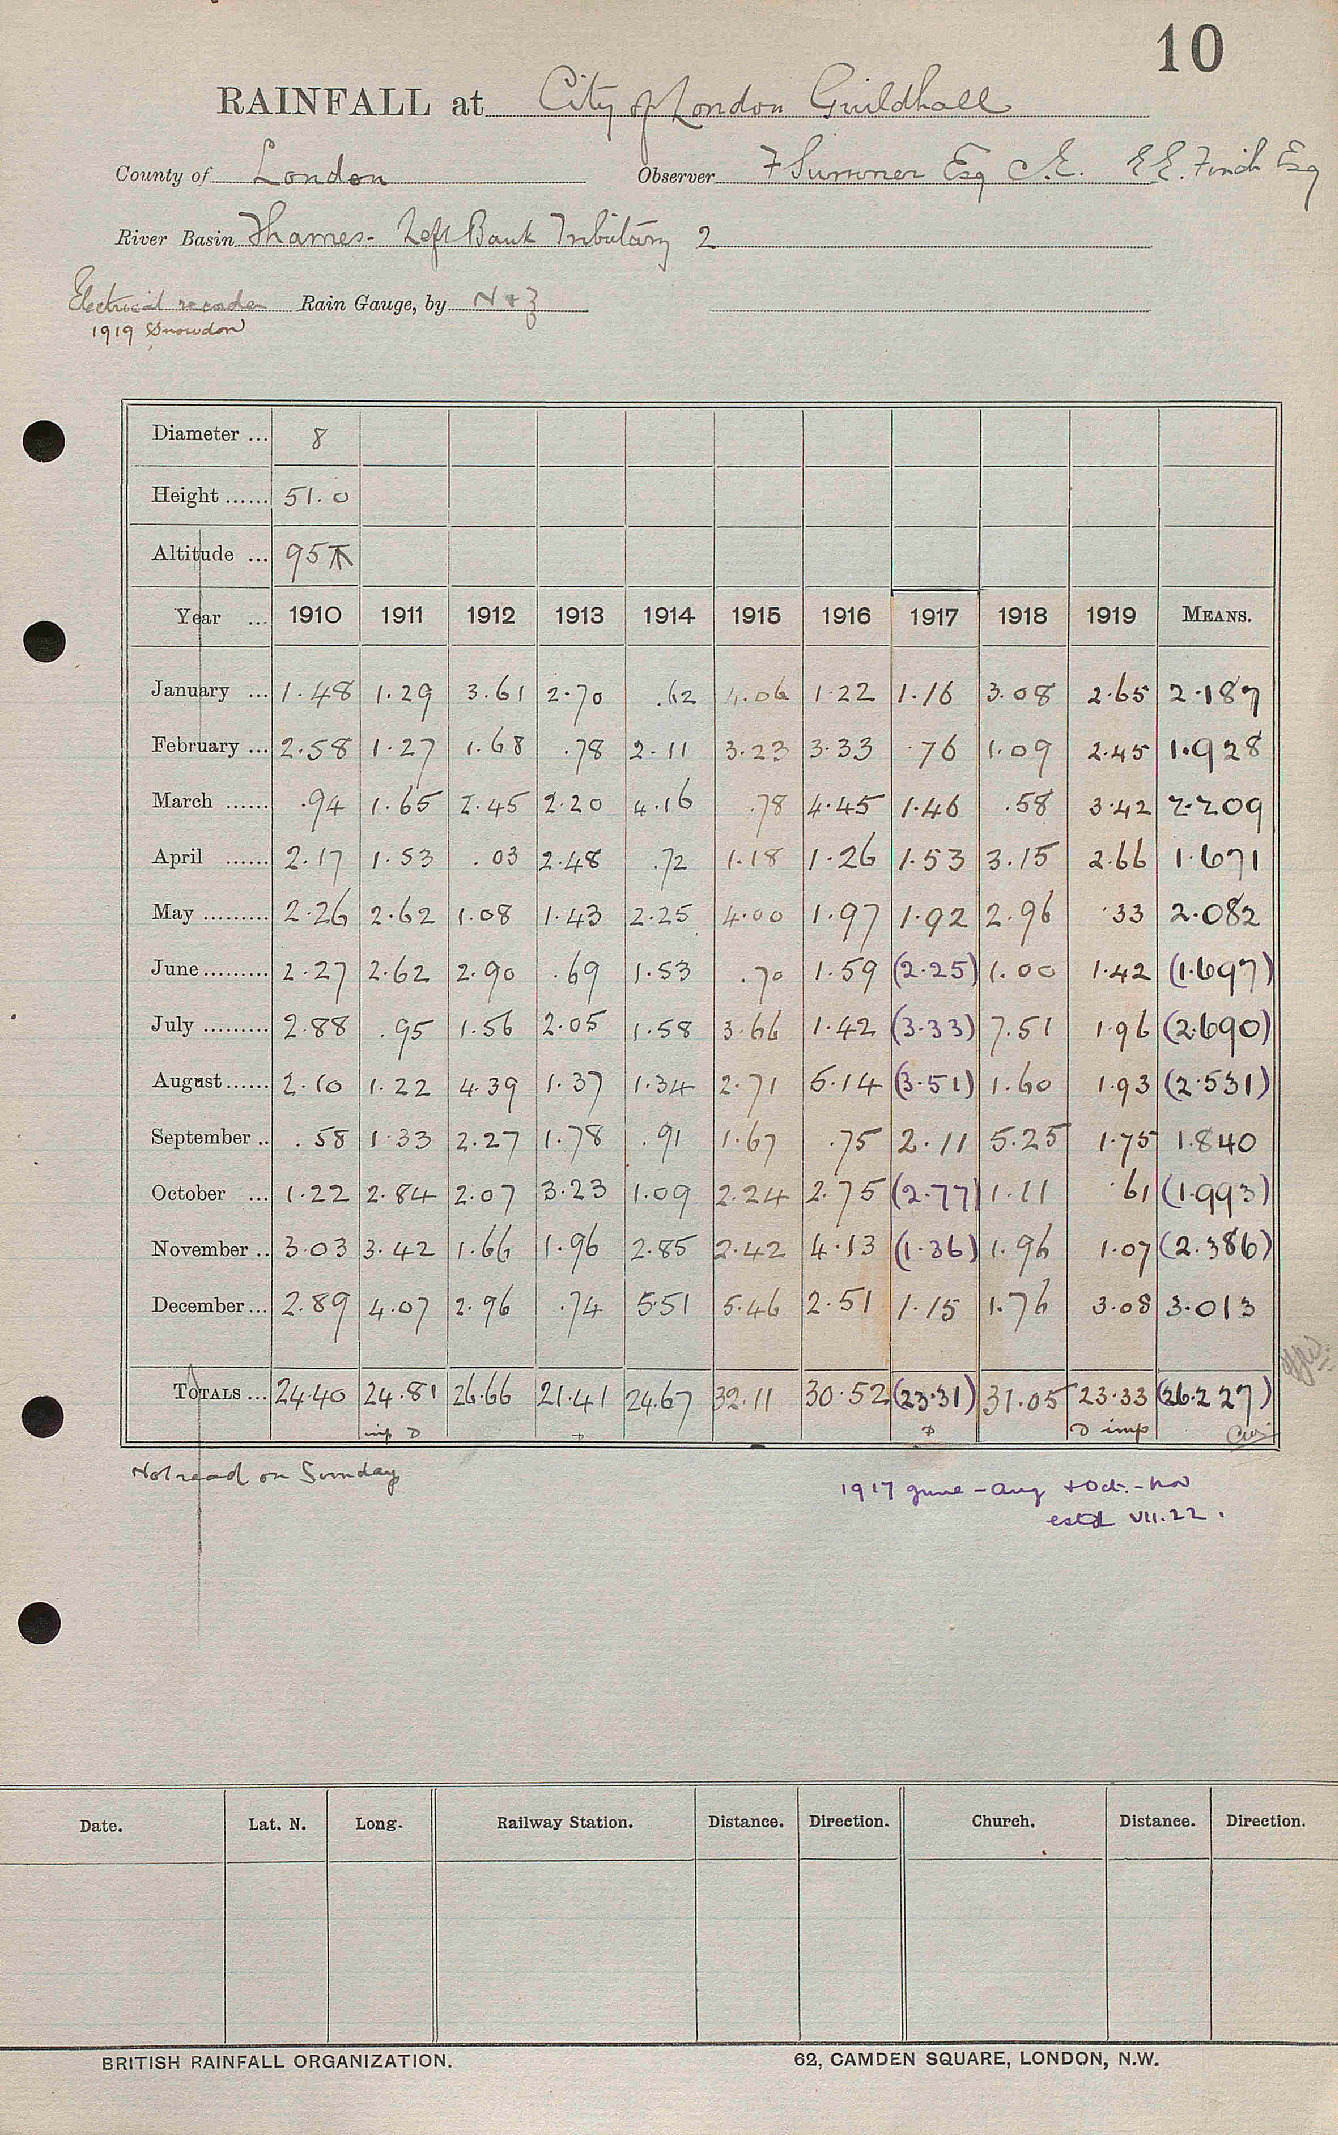 10
RAINFALL at City of London Guildhall
County of London Observer F Sumner Esq C.E. E E. Finch Esq
River Basin Thames - Left Bank Tributary 2
Electrical recorder Rain Gauge, by N & Z
1919 Snowdon
Diameter ... 8
Height ...... 51.0
Altitude ... 95
Year ... 1910 1911 1912 1913 1914 1915 1916 1917 1918 1919 MEANS.
January ... 1.48 1.29 3.61 2.70 .62 4.06 1.22 1.16 3.08 2.65 2.187
February ... 2.58 1.27 1.68 .78 2.11 3.23 3.33 .76 1.09 2.45 1.928
March ...... .94 1.65 2.45 2.20 4.16 .78 4.45 1.46 .58 3.42 2.209
April ...... 2.17 1.53 .03 2.48 .72 1.18 1.26 1.53 3.15 2.66 1.671
May ......... 2.26 2.62 1.08 1.43 2.25 4.00 1.97 1.92 2.96 .33 2.082
June ......... 2.27 2.62 2.90 .69 1.53 .70 1.59 (2.25) 1.00 1.42 (1.697)
July ......... 2.88 .95 1.56 2.05 1.58 3.66 1.42 (3.33) 7.51 1.96 (2.690)
August ...... 2.10 1.22 4.39 1.37 1.34 2.71 5.14 (3.51) 1.60 1.93 (2.531)
September .. .58 1.33 2.27 1.78 .91 1.67 .75 2.11 5.25 1.75 1.840
October ... 1.22 2.84 2.07 3.23 1.09 2.24 2.75 (2.77) 1.11 .61 (1.993)
November .. 3.03 3.42 1.66 1.96 2.85 2.42 4.13 (1.36) 1.96 1.07 (2.386)
December ... 2.89 4.07 2.96 .74 5.51 5.46 2.51 1.15 1.76 3.08 3.013
TOTALS ... 24.40 24.81 26.66 21.41 24.67 32.11 30.52 (23.31) 31.05 23.33 (26.227)
imp D D imp
Not read on Sunday
1917 June - Aug + Oct. - Nov
estd VII.22.
Date. Lat. N. Long. Railway Station. Distance. Direction. Church. Distance. Direction.
BRITISH RAINFALL ORGANIZATION. 62, CAMDEN SQUARE, LONDON, N.W.